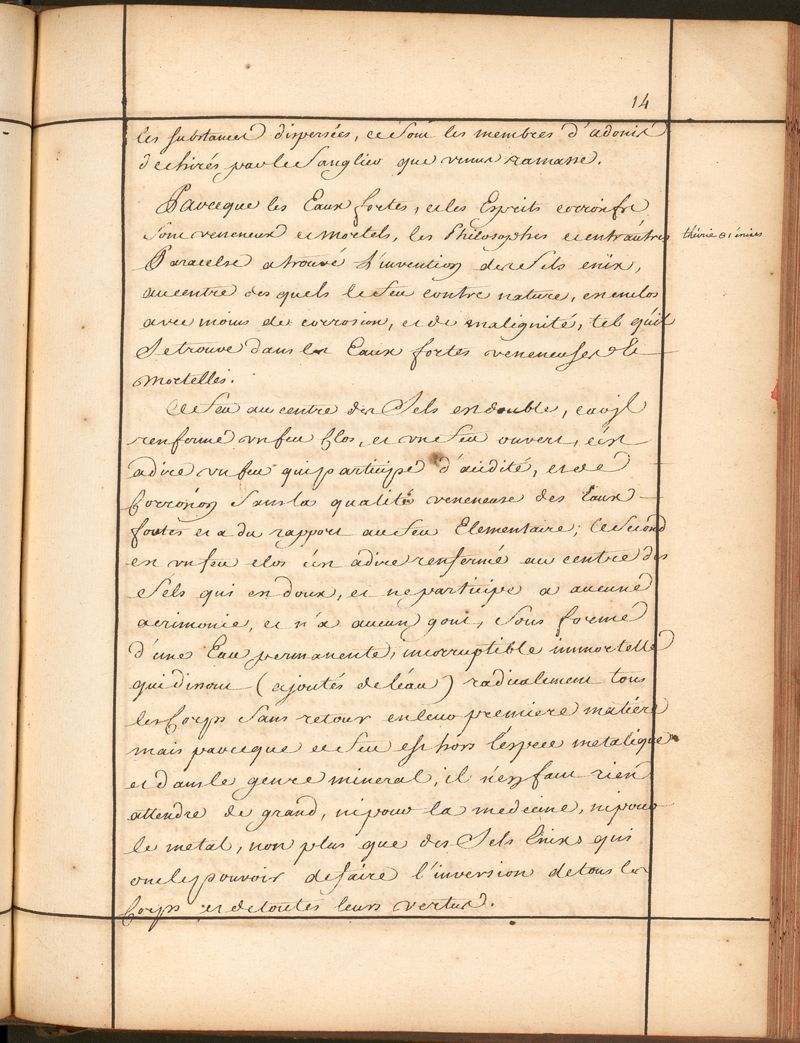 14
les substances dispersées, ce sont les membres d'adonis
dechirés par le Sanglier que venus ramasse.
Parceque les Eaux fortes, et les Esprits corrosifs
sont veneneux et mortels, les Philosophes et entr'autres
Paracelse a trouvé l'invention des Sels enix,
au centre des quels le feu contre nature, est enclos
avec moins de corrosion, et de malignité, tel qu'il
se trouve dans les Eaux fortes veneneuses et
mortelles.
Ce feu au centre des Sels est double, car jl
renferme un feu clos, et un feu ouvert, c'est
adire un feu qui participe d'acidité, et de
Corrosion sans la qualité veneneuse des Eaux
fortes et a du rapport au feu Elementaire; le second
est un feu clos c'est adire renfermé au centre des
Sels qui est doux, et ne participe a aucune
acrimonie, et n'a aucun gout, sous forme
d'une Eau permanente, incorruptible immortelle
qui disout (ajoutés de l'eau) radicalement tous
les Corps sans retour en leur premiere matiere
mais parceque ce feu est hors l'espece metalique
et dans le genre mineral, il n'en faut rien
attendre de grand, ni pour la medecine, ni pour
le metal, non plus que des Sels Enixs qui
ont le pouvoir de faire l'inversion de tous les
Corps et de toutes leurs vertus.